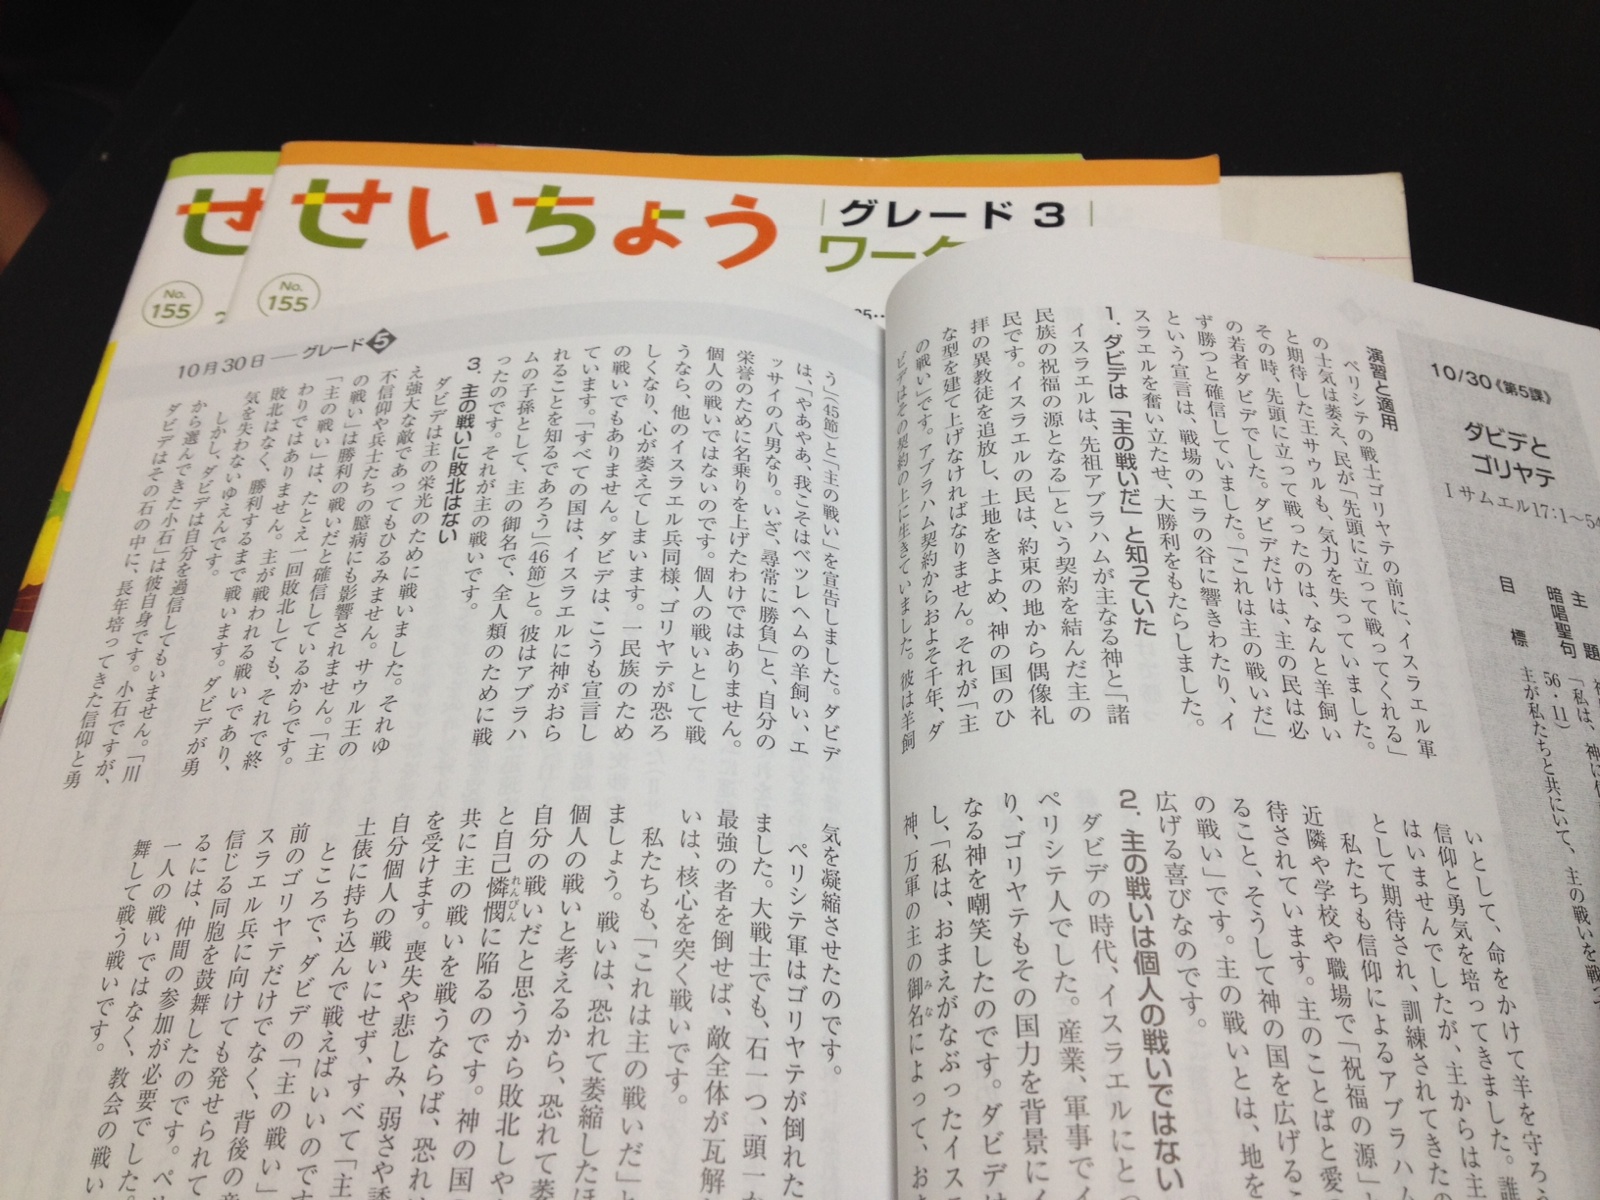 せ
せいちょう
グレード 3
ワーク
No.
155
No.
155
10/30《第5課》
ダビデと
ゴリヤテ
Ⅰサムエル17:1〜54
主 題
暗唱聖句 「私は、神に信
56・11)
目 標 主が私たちと共にいて、主の戦いを戦っ
演習と適用
ペリシテの戦士ゴリヤテの前に、イスラエル軍
の士気は萎え、民が「先頭に立って戦ってくれる」
と期待した王サウルも、気力を失っていました。
その時、先頭に立って戦ったのは、なんと羊飼い
の若者ダビデでした。ダビデだけは、主の民は必
ず勝つと確信していました。「これは主の戦いだ」
という宣言は、戦場のエラの谷に響きわたり、イ
スラエルを奮い立たせ、大勝利をもたらしました。
1. ダビデは「主の戦いだ」と知っていた
イスラエルは、先祖アブラハムが主なる神と「諸
民族の祝福の源となる」という契約を結んだ主の
民です。イスラエルの民は、約束の地から偶像礼
拝の異教徒を追放し、土地をきよめ、神の国のひ
な型を建て上げなければなりません。それが「主
の戦い」です。アブラハム契約からおよそ千年、ダ
ビデはその契約の上に生きていました。彼は羊飼
いとして、命をかけて羊を守ろ
信仰と勇気を培ってきました。誰
はいませんでしたが、主からは主
として期待され、訓練されてきたの
私たちも信仰によるアブラハム
近隣や学校や職場で「祝福の源」と
待されています。主のことばと愛の
ること、そうして神の国を広げるこ
の戦い」です。主の戦いとは、地を
広げる喜びなのです。
2. 主の戦いは個人の戦いではない
ダビデの時代、イスラエルにとっ
ペリシテ人でした。産業、軍事でイ
り、ゴリヤテもその国力を背景にイ
なる神を嘲笑したのです。ダビデは
し、「私は、おまえがなぶったイス
神、万軍の主の御名によって、お
みな
10月30日 — グレード5
う」(45節)と「主の戦い」を宣告しました。ダビデ
は、「やあやあ、我こそはベツレヘムの羊飼い、エ
ッサイの八男なり。いざ、尋常に勝負」と、自分の
栄誉のために名乗りを上げたわけではありません。
個人の戦いではないのです。個人の戦いとして戦
うなら、他のイスラエル兵同様、ゴリヤテが恐ろ
しくなり、心が萎えてしまいます。一民族のため
の戦いでもありません。ダビデは、こうも宣言し
ています。「すべての国は、イスラエルに神がおら
れることを知るであろう」(46節)と。彼はアブラハ
ムの子孫として、主の御名で、全人類のために戦
ったのです。それが主の戦いです。
3. 主の戦いに敗北はない
ダビデは主の栄光のために戦いました。それゆ
え強大な敵であってもひるみません。サウル王の
不信仰や兵士たちの臆病にも影響されません。「主
の戦い」は勝利の戦いだと確信しているからです。
「主の戦い」は、たとえ一回敗北しても、それで終
わりではありません。主が戦われる戦いであり、
敗北はなく、勝利するまで戦います。ダビデが勇
気を失わないゆえんです。
しかし、ダビデは自分を過信してもいません。「川
から選んできた小石」は彼自身です。小石ですが、
ダビデはその石の中に、長年培ってきた信仰と勇
気を凝縮させたのです。
ペリシテ軍はゴリヤテが倒れた
ました。大戦士でも、石一つ、頭一
最強の者を倒せば、敵全体が瓦解
いは、核心を突く戦いです。
私たちも、「これは主の戦いだ」と
ましょう。戦いは、恐れて萎縮したほ
個人の戦いと考えるから、恐れて萎
自分の戦いだと思うから敗北しや
と自己憐憫に陥るのです。神の国
れんびん
共に主の戦いを戦うならば、恐れ
を受けます。喪失や悲しみ、弱さや誘
自分個人の戦いにせず、すべて「主
土俵に持ち込んで戦えばいいのです
ところで、ダビデの「主の戦い」
前のゴリヤテだけでなく、背後の
スラエル兵に向けても発せられて
信じる同胞を鼓舞したのです。
るには、仲間の参加が必要でした。
一人の戦いではなく、教会の戦い
舞して戦う戦いです。